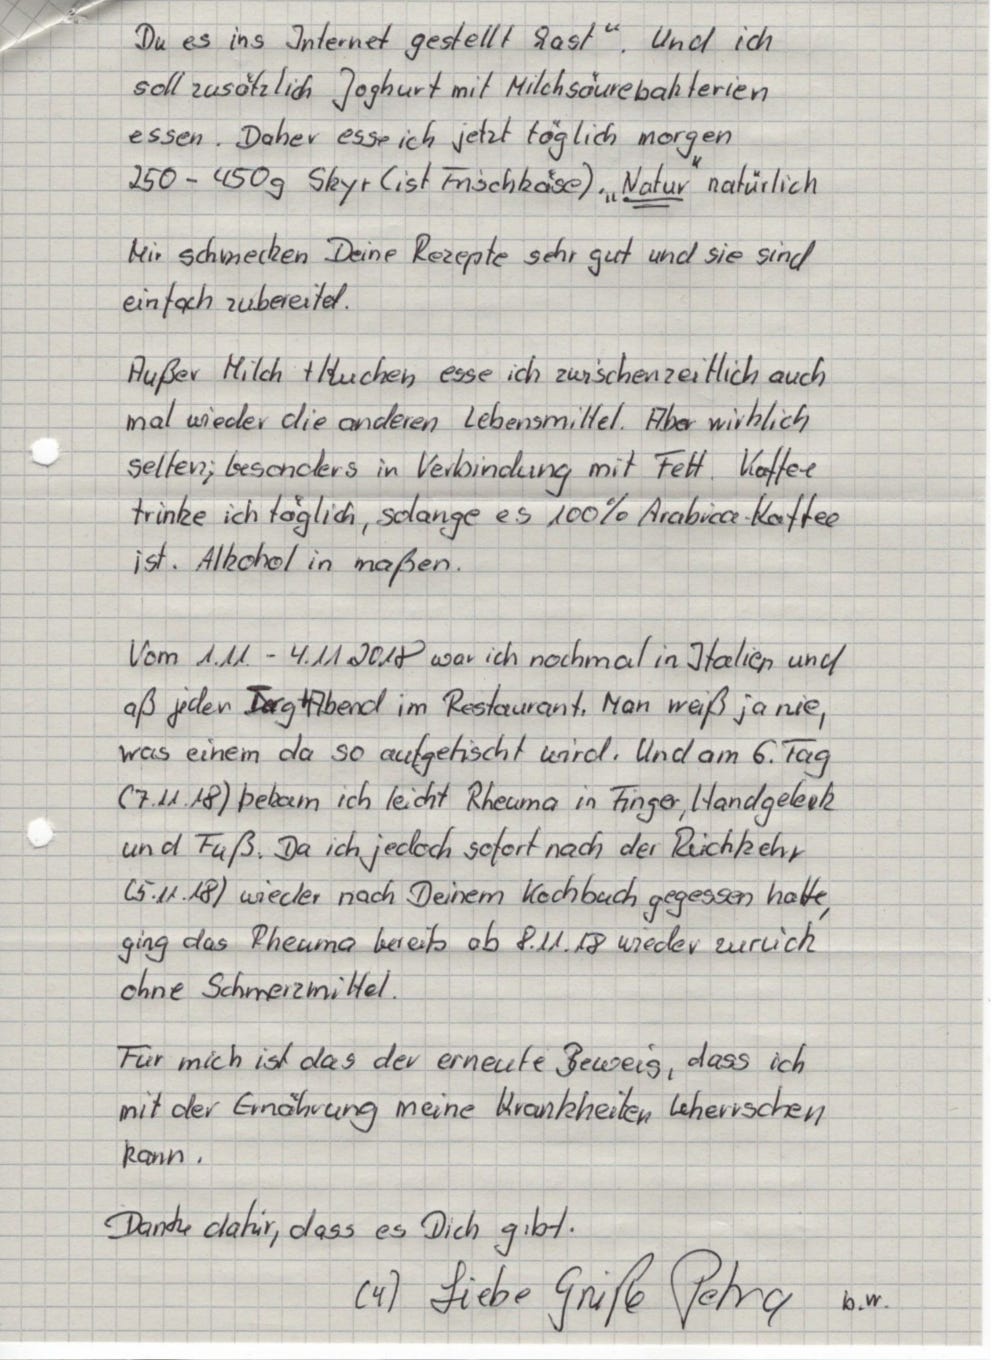 Du es ins Internet gestellt hast". Und ich
soll zusätzlich Joghurt mit Milchsäurebakterien
essen. Daher esse ich jetzt täglich morgen
250 - 450g Skyr (ist Frischkäse). „Natur" natürlich
Mir schmecken Deine Rezepte sehr gut und sie sind
einfach zubereitet.
Außer Milch + Kuchen esse ich zwischenzeitlich auch
mal wieder die anderen Lebensmittel. Aber wirklich
selten; besonders in Verbindung mit Fett. Kaffee
trinke ich täglich, solange es 100% Arabica-Kaffee
ist. Alkohol in maßen.
Vom 1.11. - 4.11.2018 war ich nochmal in Italien und
aß jeden Abend im Restaurant. Man weiß ja nie,
was einem da so aufgetischt wird. Und am 6. Tag
(7.11.18) bekam ich leicht Rheuma in Finger, Handgelenk
und Fuß. Da ich jedoch sofort nach der Rückkehr
(5.11.18) wieder nach Deinem Kochbuch gegessen hatte,
ging das Rheuma bereits ab 8.11.18 wieder zurück
ohne Schmerzmittel.
Für mich ist das der erneute Beweis, dass ich
mit der Ernährung meine Krankheiten beherrschen
kann.
Danke dafür, dass es Dich gibt.
(4) Liebe Grüße Petra b.w.